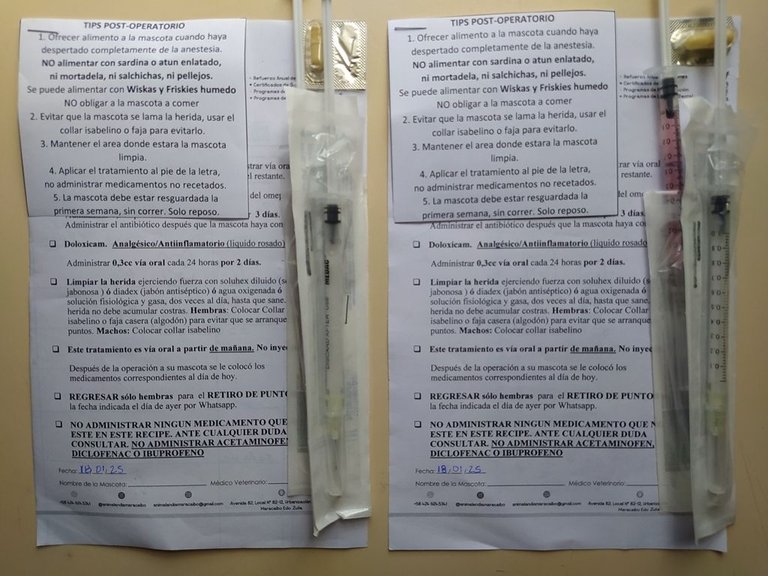 TIPS POST-OPERATORIO
1. Ofrecer alimento a la mascota cuando haya
despertado completamente de la anestesia.
NO alimentar con sardina o atun enlatado,
ni mortadela, ni salchichas, ni pellejos.
Se puede alimentar con Wiskas y Friskies humedo
NO obligar a la mascota a comer
2. Evitar que la mascota se lama la herida, usar el
collar isabelino o faja para evitarlo.
3. Mantener el area donde estara la mascota
limpia.
4. Aplicar el tratamiento al pie de la letra,
no administrar medicamentos no recetados.
5. La mascota debe estar resguardada la
primera semana, sin correr. Solo reposo.
• Refuerzo Anual de
• Certificados de
Programas de
• Programa de
trar vía oral
restante.
del
3 días.
Administrar el antibiótico después que la mascota
Doloxicam. Analgésico/Antiinflamatorio (liquido rosado)
Administrar 0,3cc vía oral cada 24 horas por 2 días.
Limpiar la herida ejerciendo fuerza con soluhex diluido
jabonosa ) ó diadex (jabón antiséptico) ó agua oxigenada ó
solución fisiológica y gasa, dos veces al día, hasta que sane.
herida no debe acumular costras. Hembras: Colocar Collar
isabelino o faja casera (algodón) para evitar que se arranque
puntos. Machos: Colocar collar isabelino
Este tratamiento es vía oral a partir de mañana. No
Después de la operación a su mascota se le colocó los
medicamentos correspondientes al día de hoy.
REGRESAR sólo hembras para el RETIRO DE PUNTO
la fecha indicada el día de ayer por Whatsapp.
NO ADMINISTRAR NINGUN MEDICAMENTO QUE
ESTE EN ESTE RECIPE. ANTE CUALQUIER DUDA
CONSULTAR. NO ADMINISTRAR ACETAMINOFEN
DICLOFENAC O IBUPROFENO
Fecha: 18,01,25
Nombre de la Mascota: Médico Veterinario:
animalandiamaracaibo@gmail.com Avenida 82, Local N° 82-12, Urbanización
Maracaibo Edo Zulia
TIPS POST-OPERATORIO
1. Ofrecer alimento a la mascota cuando haya
despertado completamente de la anestesia.
NO alimentar con sardina o atun enlatado,
ni mortadela, ni salchichas, ni pellejos.
Se puede alimentar con Wiskas y Friskies humedo
NO obligar a la mascota a comer
2. Evitar que la mascota se lama la herida, usar el
collar isabelino o faja para evitarlo.
3. Mantener el area donde estara la mascota
limpia.
4. Aplicar el tratamiento al pie de la letra,
no administrar medicamentos no recetados.
5. La mascota debe estar resguardada la
primera semana, sin correr. Solo reposo.
trar vía oral
restante.
del
3 días.
Administrar el antibiótico después que la mascota
Doloxicam. Analgésico/Antiinflamatorio (liquido rosado)
Administrar 0,3cc vía oral cada 24 horas por 2 días.
Limpiar la herida ejerciendo fuerza con soluhex diluido
jabonosa ) ó diadex (jabón antiséptico) ó agua oxigenada ó
solución fisiológica y gasa, dos veces al día, hasta que sane.
herida no debe acumular costras. Hembras: Colocar Collar
isabelino o faja casera (algodón) para evitar que se arranque
puntos. Machos: Colocar collar isabelino
Este tratamiento es vía oral a partir de mañana. No
Después de la operación a su mascota se le colocó los
medicamentos correspondientes al día de hoy.
REGRESAR sólo hembras para el RETIRO DE PUNTO
la fecha indicada el día de ayer por Whatsapp.
NO ADMINISTRAR NINGUN MEDICAMENTO QUE
ESTE EN ESTE RECIPE. ANTE CUALQUIER DUDA
CONSULTAR. NO ADMINISTRAR ACETAMINOFEN,
DICLOFENAC O IBUPROFENO
Fecha: 18,01,25
Nombre de la Mascota: Médico Veterinario:
animalandiamaracaibo@gmail.com Avenida 82, Local N° 82-12, Urbanización
Maracaibo Edo Zulia